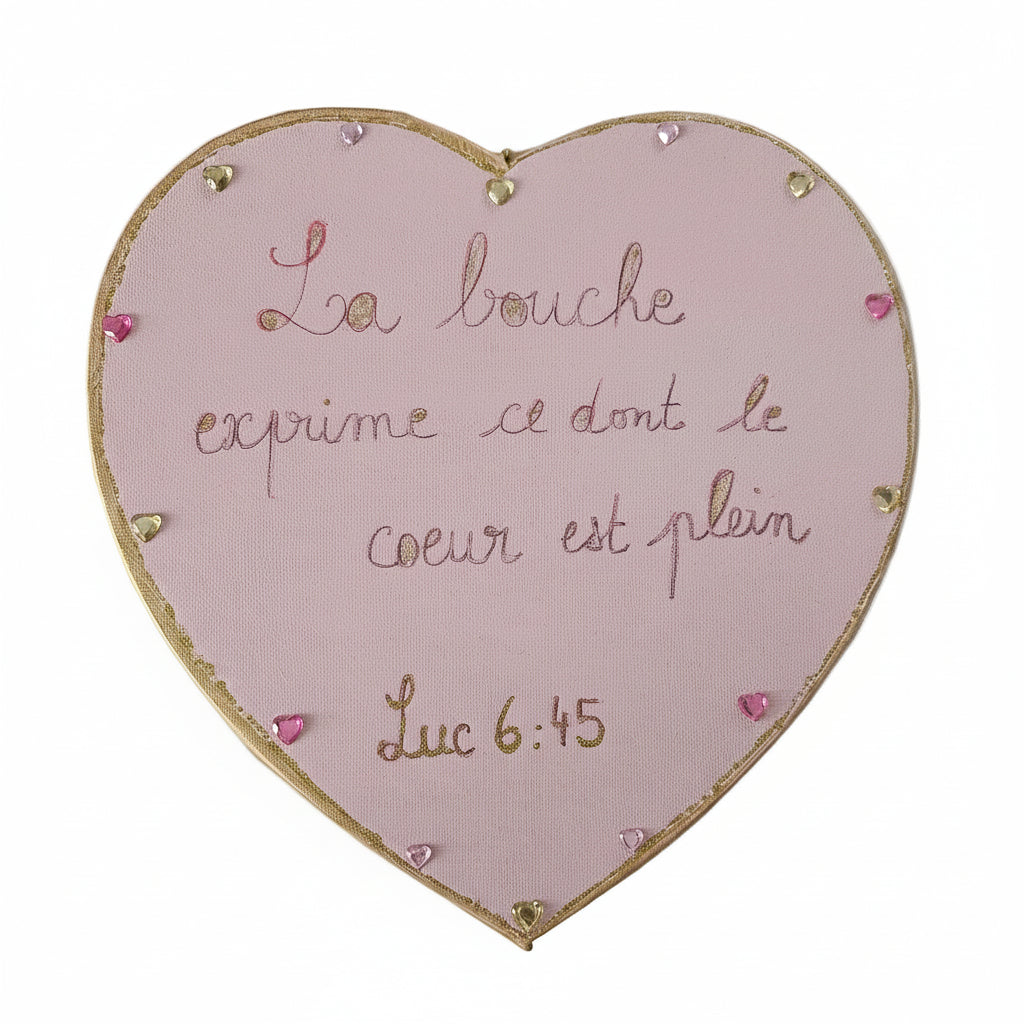 La bouche
exprime ce dont le
coeur est plein
Luc 6:45